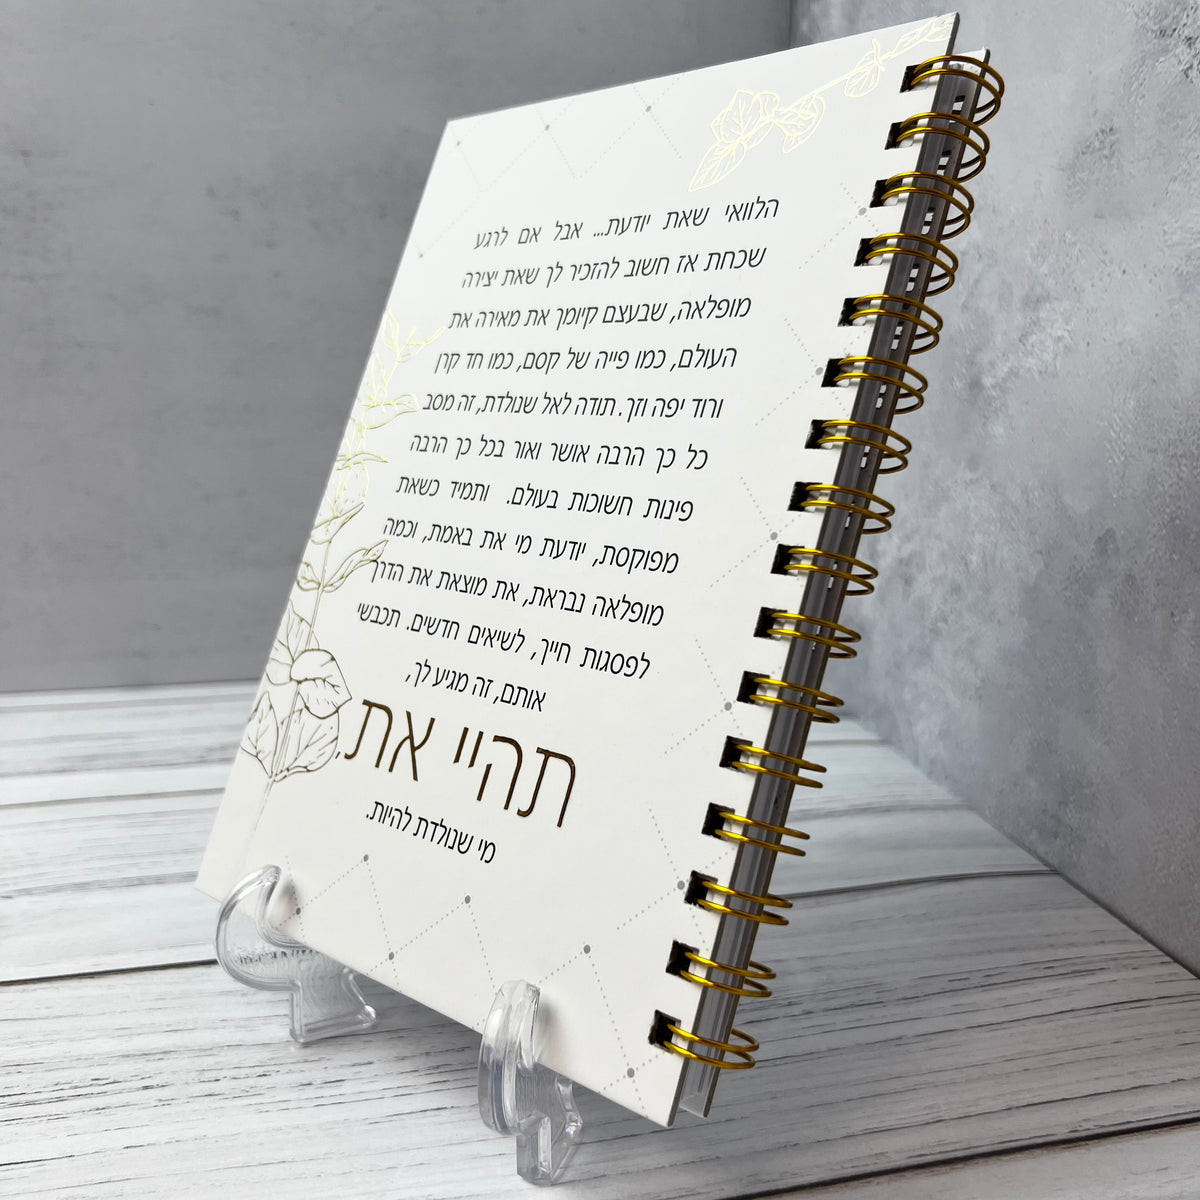 הלוואי שאת יודעת... אבל אם לרגע
שכחת אז חשוב להזכיר לך שאת יצירה
מופלאה, שבעצם קיומך את מאירה את
העולם, כמו פייה של קסם, כמו חד קרן
ורוד יפה וזך. תודה לאל שנולדת, זה מסב
כל כך הרבה אושר ואור בכל כך הרבה
פינות חשוכות בעולם. ותמיד כשאת
מפוקסת, יודעת מי את באמת, וכמה
מופלאה נבראת, את מוצאת את הדרך
לפסגות חייך, לשיאים חדשים. תכבשי
אותם, זה מגיע לך,
תהיי את.
מי שנולדת להיות.